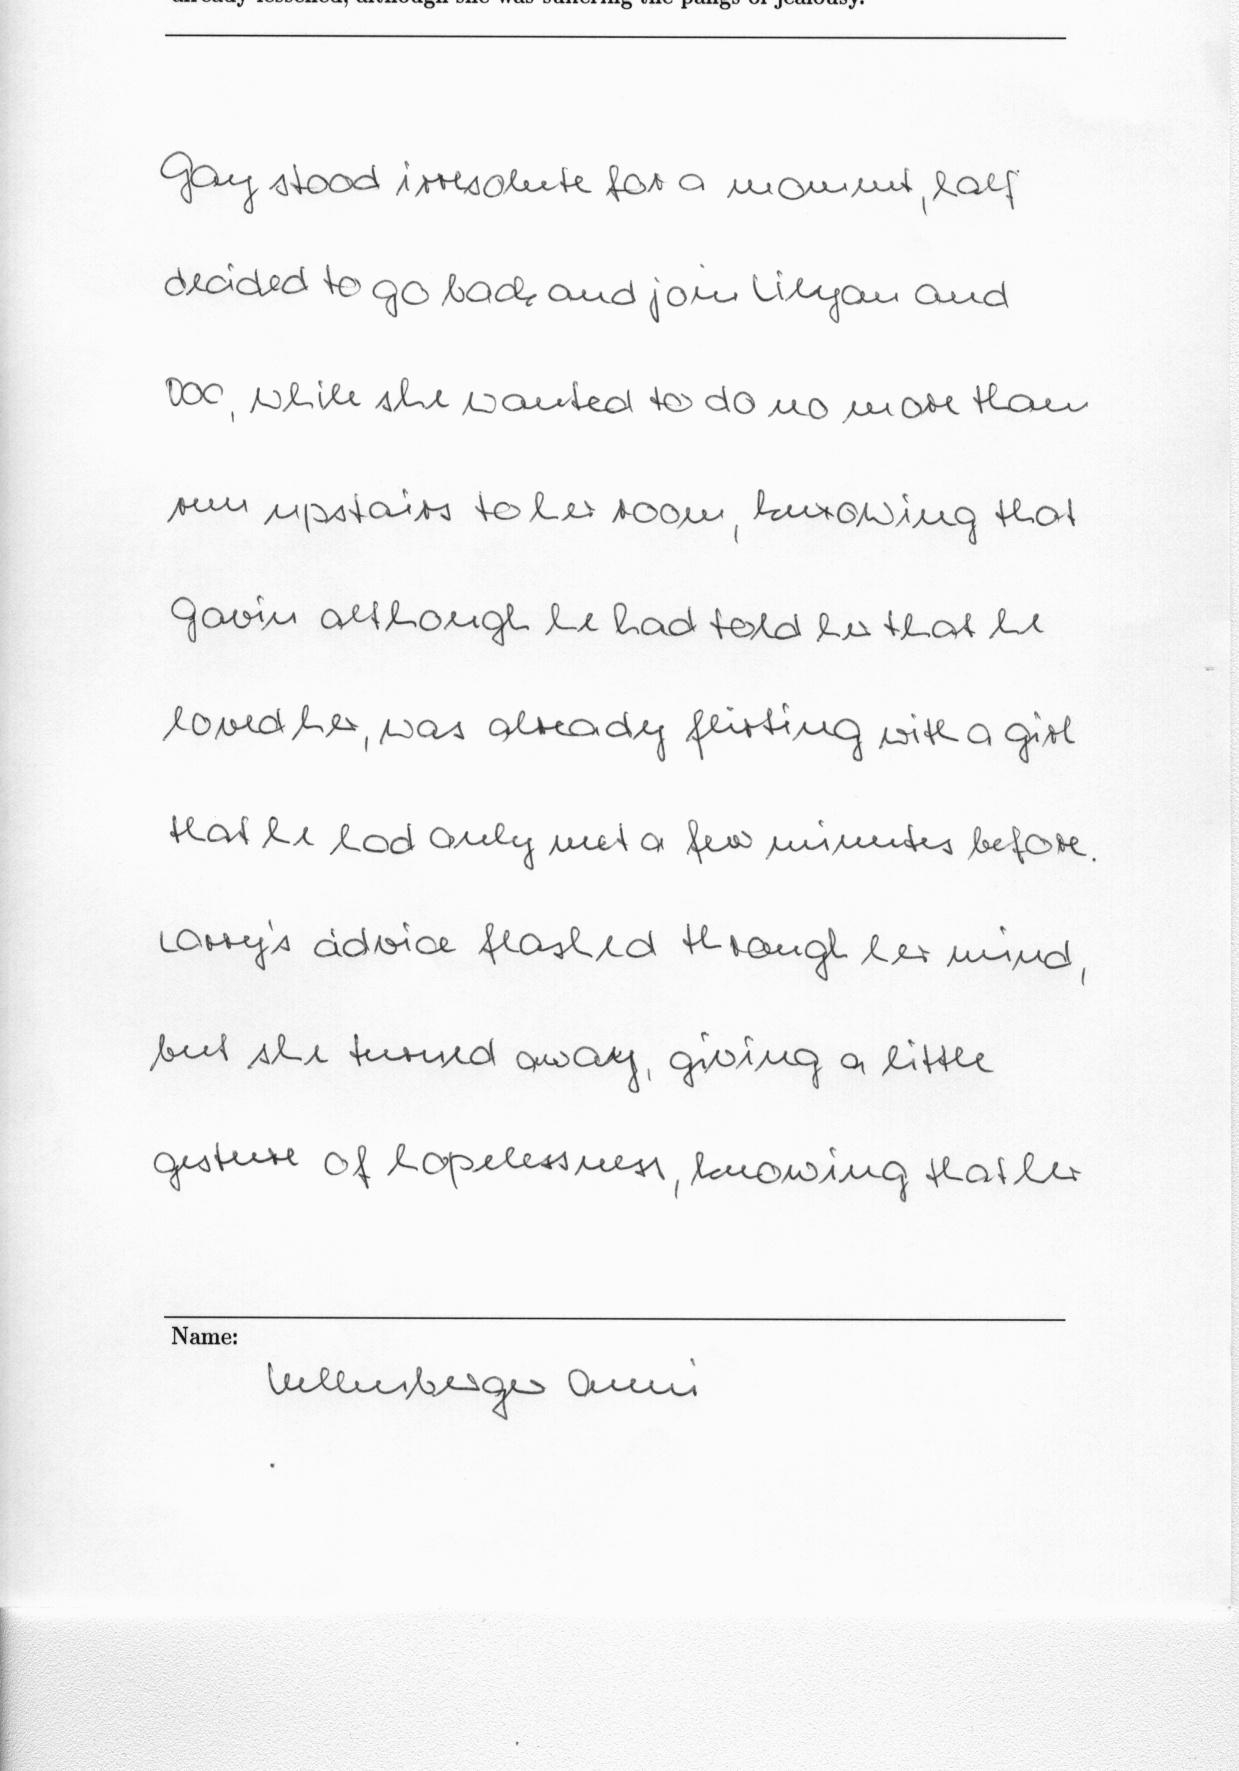 already lessened, although she was suffering the pangs of jealousy.
Gay stood irresolute for a moment, half
decided to go back and join Lilyan and
Doc, while she wanted to do no more than
run upstairs to her room, knowing that
Gavin although he had told her that he
loved her, was already flirting with a girl
that he had only met a few minutes before.
Larry's advice flashed through her mind,
but she turned away, giving a little
gesture of hopelessness, knowing that her
Name:
Anni